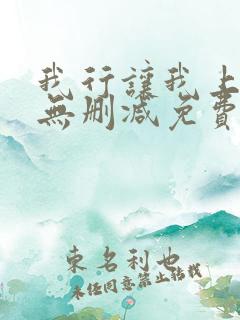 我行讓我上
無刪减免費
東名利也
未經同意禁止轉載